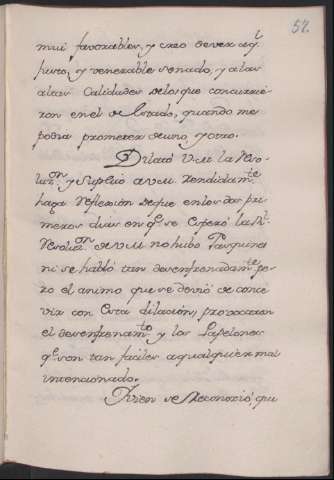 52.
mui favorables, y creo se ver aql
justo, y venerable Senado, y a las
altas Calidades de los que concurrie
ron en el de Estado, quando me
podia prometer de uno, y otro.
Dilató V.M. la Reso-
luzn. y Suplico a V.M. Rendidamte.
haga Reflexion de que en los dos pri
meros dias en qe. se esperó la Rl.
Resoluzn. de V.M. no hubo Pasquina
ni se habló tan desenfrenadamte. pe-
ro el animo que se devió de conce
vir con esta dilacion, provocaron
el desenfrenamto. y los Papelones
qe. son tan faciles a qualquier mal
intencionado.
Bien se Reconoció, que